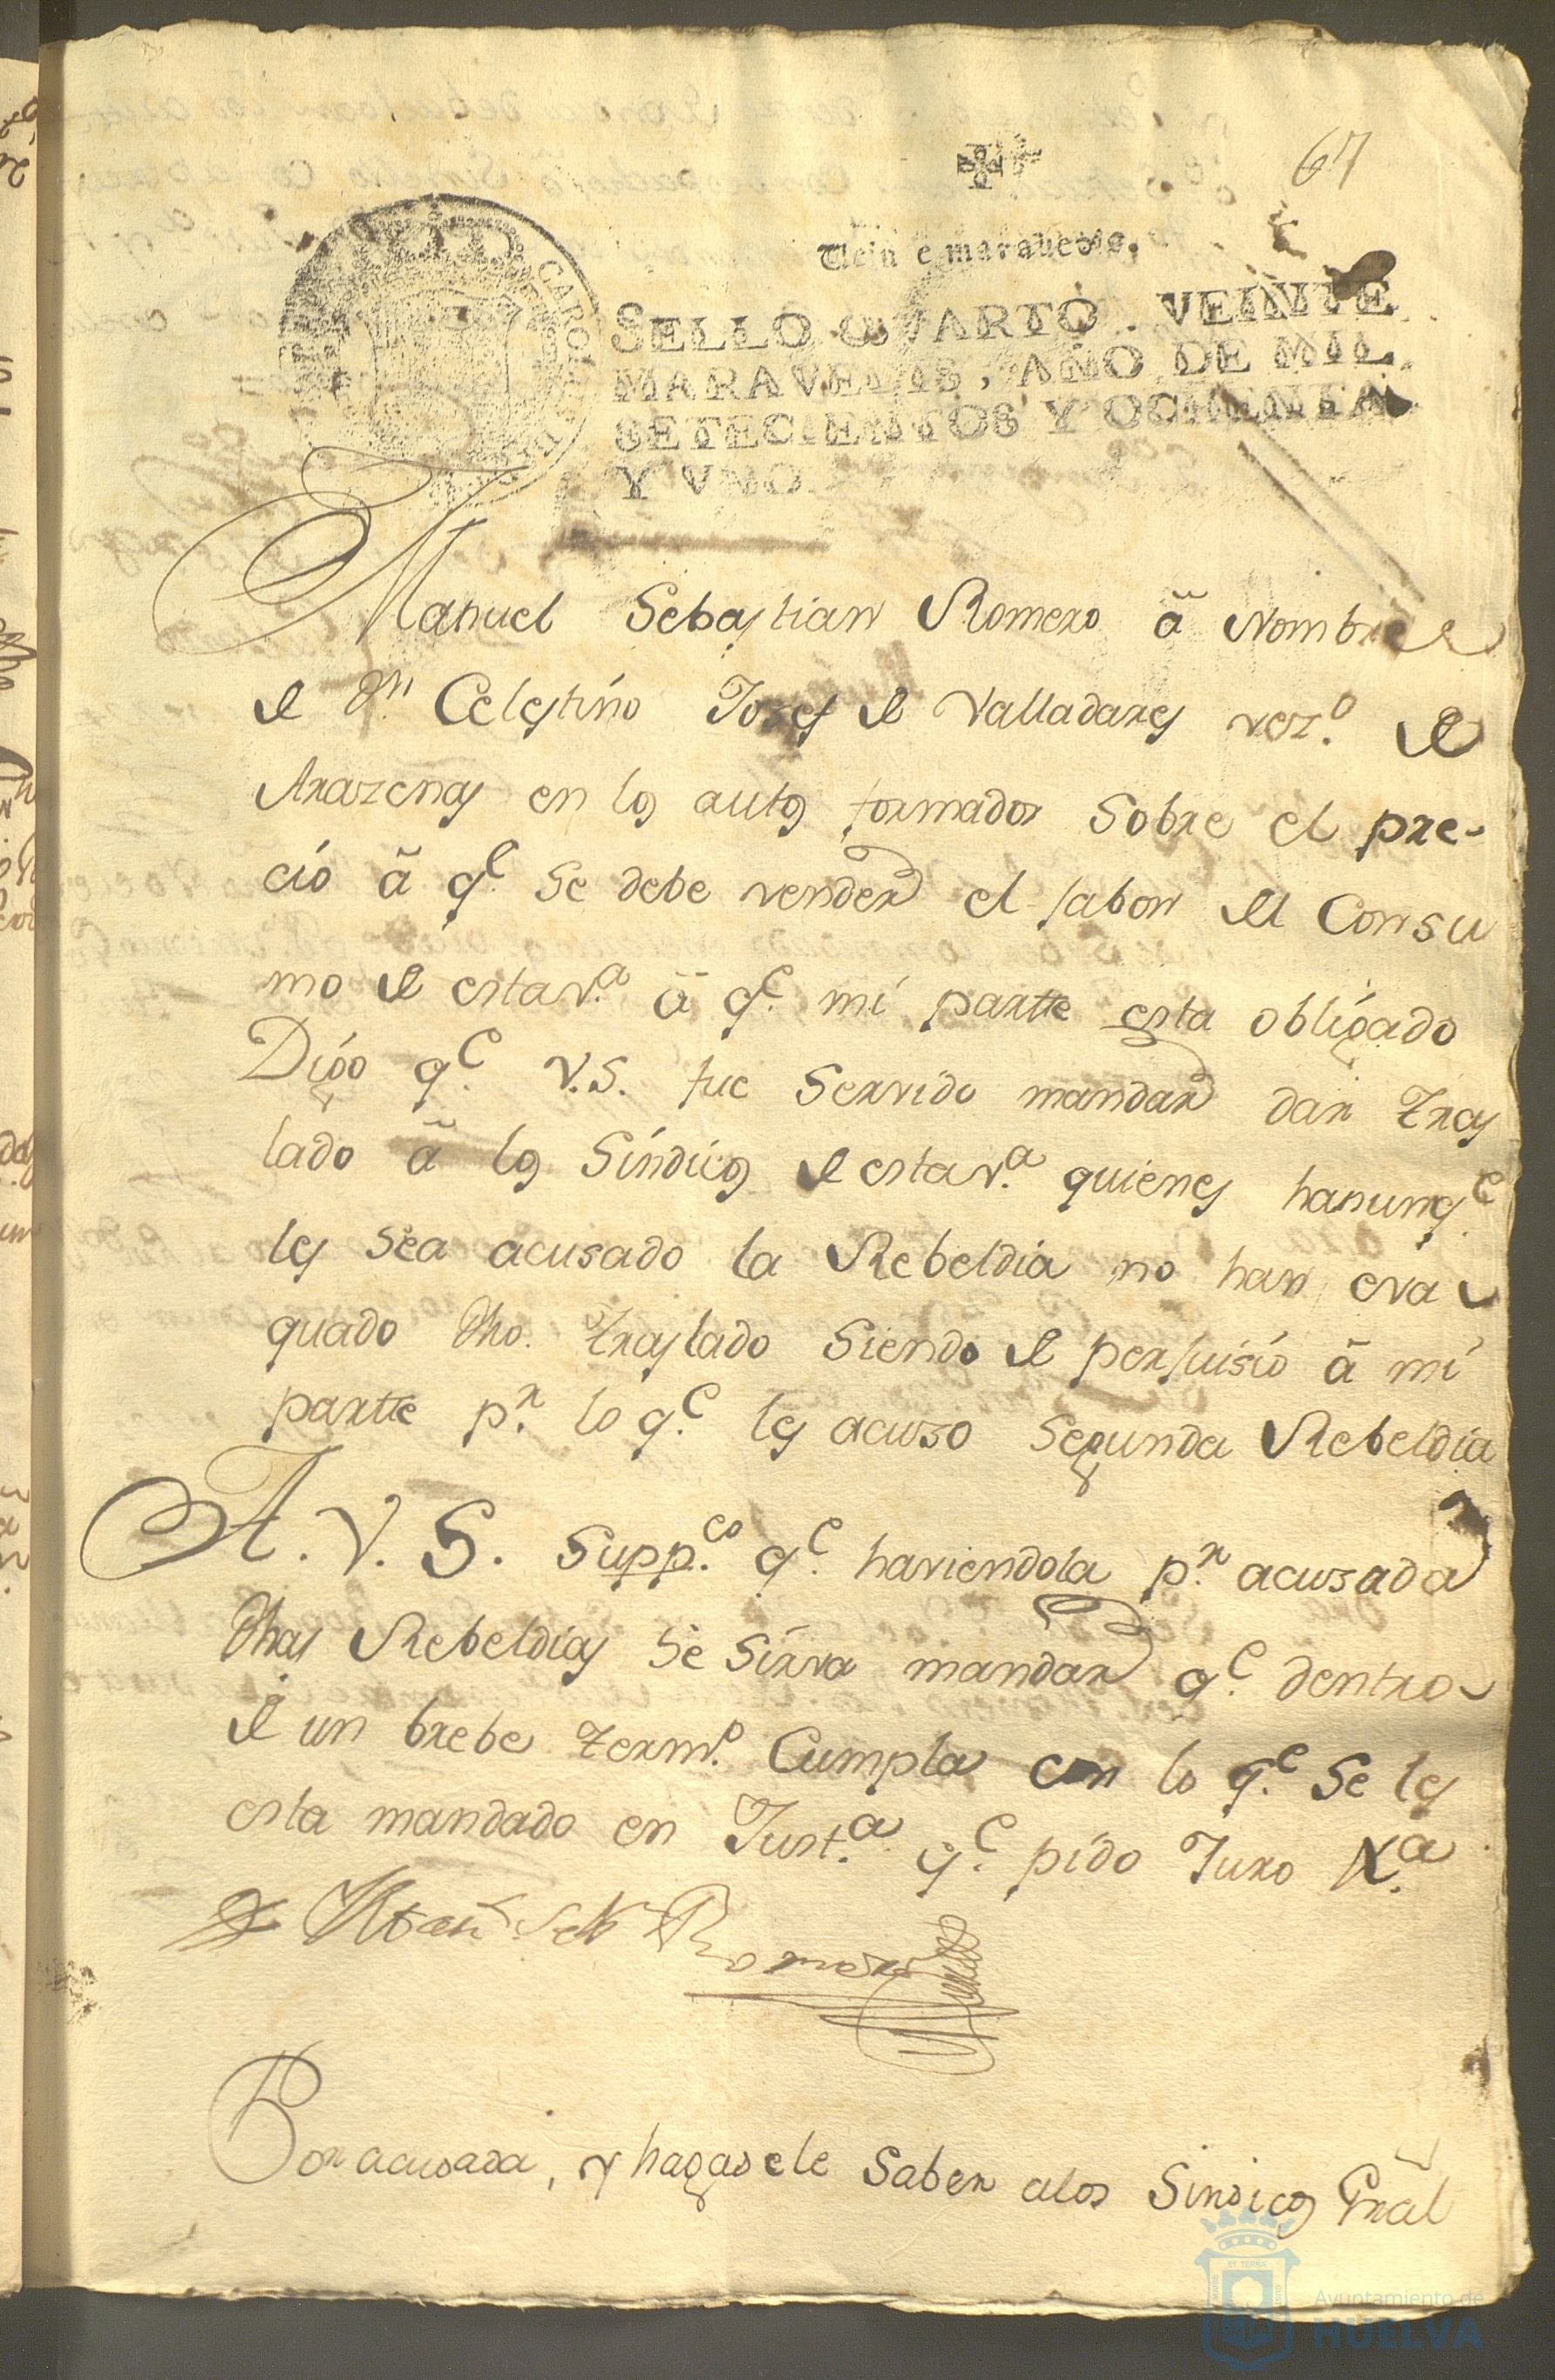 67
Veinte maravedis.
SELLO QVARTO, VEINTE
MARAVEDIS, AÑO DE MIL
SETECIENTOS Y OCHENTA
Y VNO.
Manuel Sebastian Romero â Nombre
de Dn. Celestino Josef de Valladares vezo. de
Arazena en los autos formados sobre el pre-
cio â qe. se debe vender el Jabon del Consu
mo de esta va. â qe. mi partte esta obligado
Digo qe. V.S. fue servido mandar dar tras
lado â los Sindicos de esta va. quienes hanunqe.
les sea acusado la Rebeldia no han eva
quado dho. traslado siendo de perjuisio â mi
partte pr. lo qe. les acuso segunda Rebeldia
A. V. S. Suppco. qe. haviendola pr. acusada
dhas Rebeldias se sirva mandar qe. dentro
de un brebe termo. Cumpla con lo qe. se les
esta mandado en Justa. qe. pido Juro Na.
Man Seb Romero
Por acusada, y hagasele saber alos Sindicos Gral
Ayuntamiento de
HUELVA